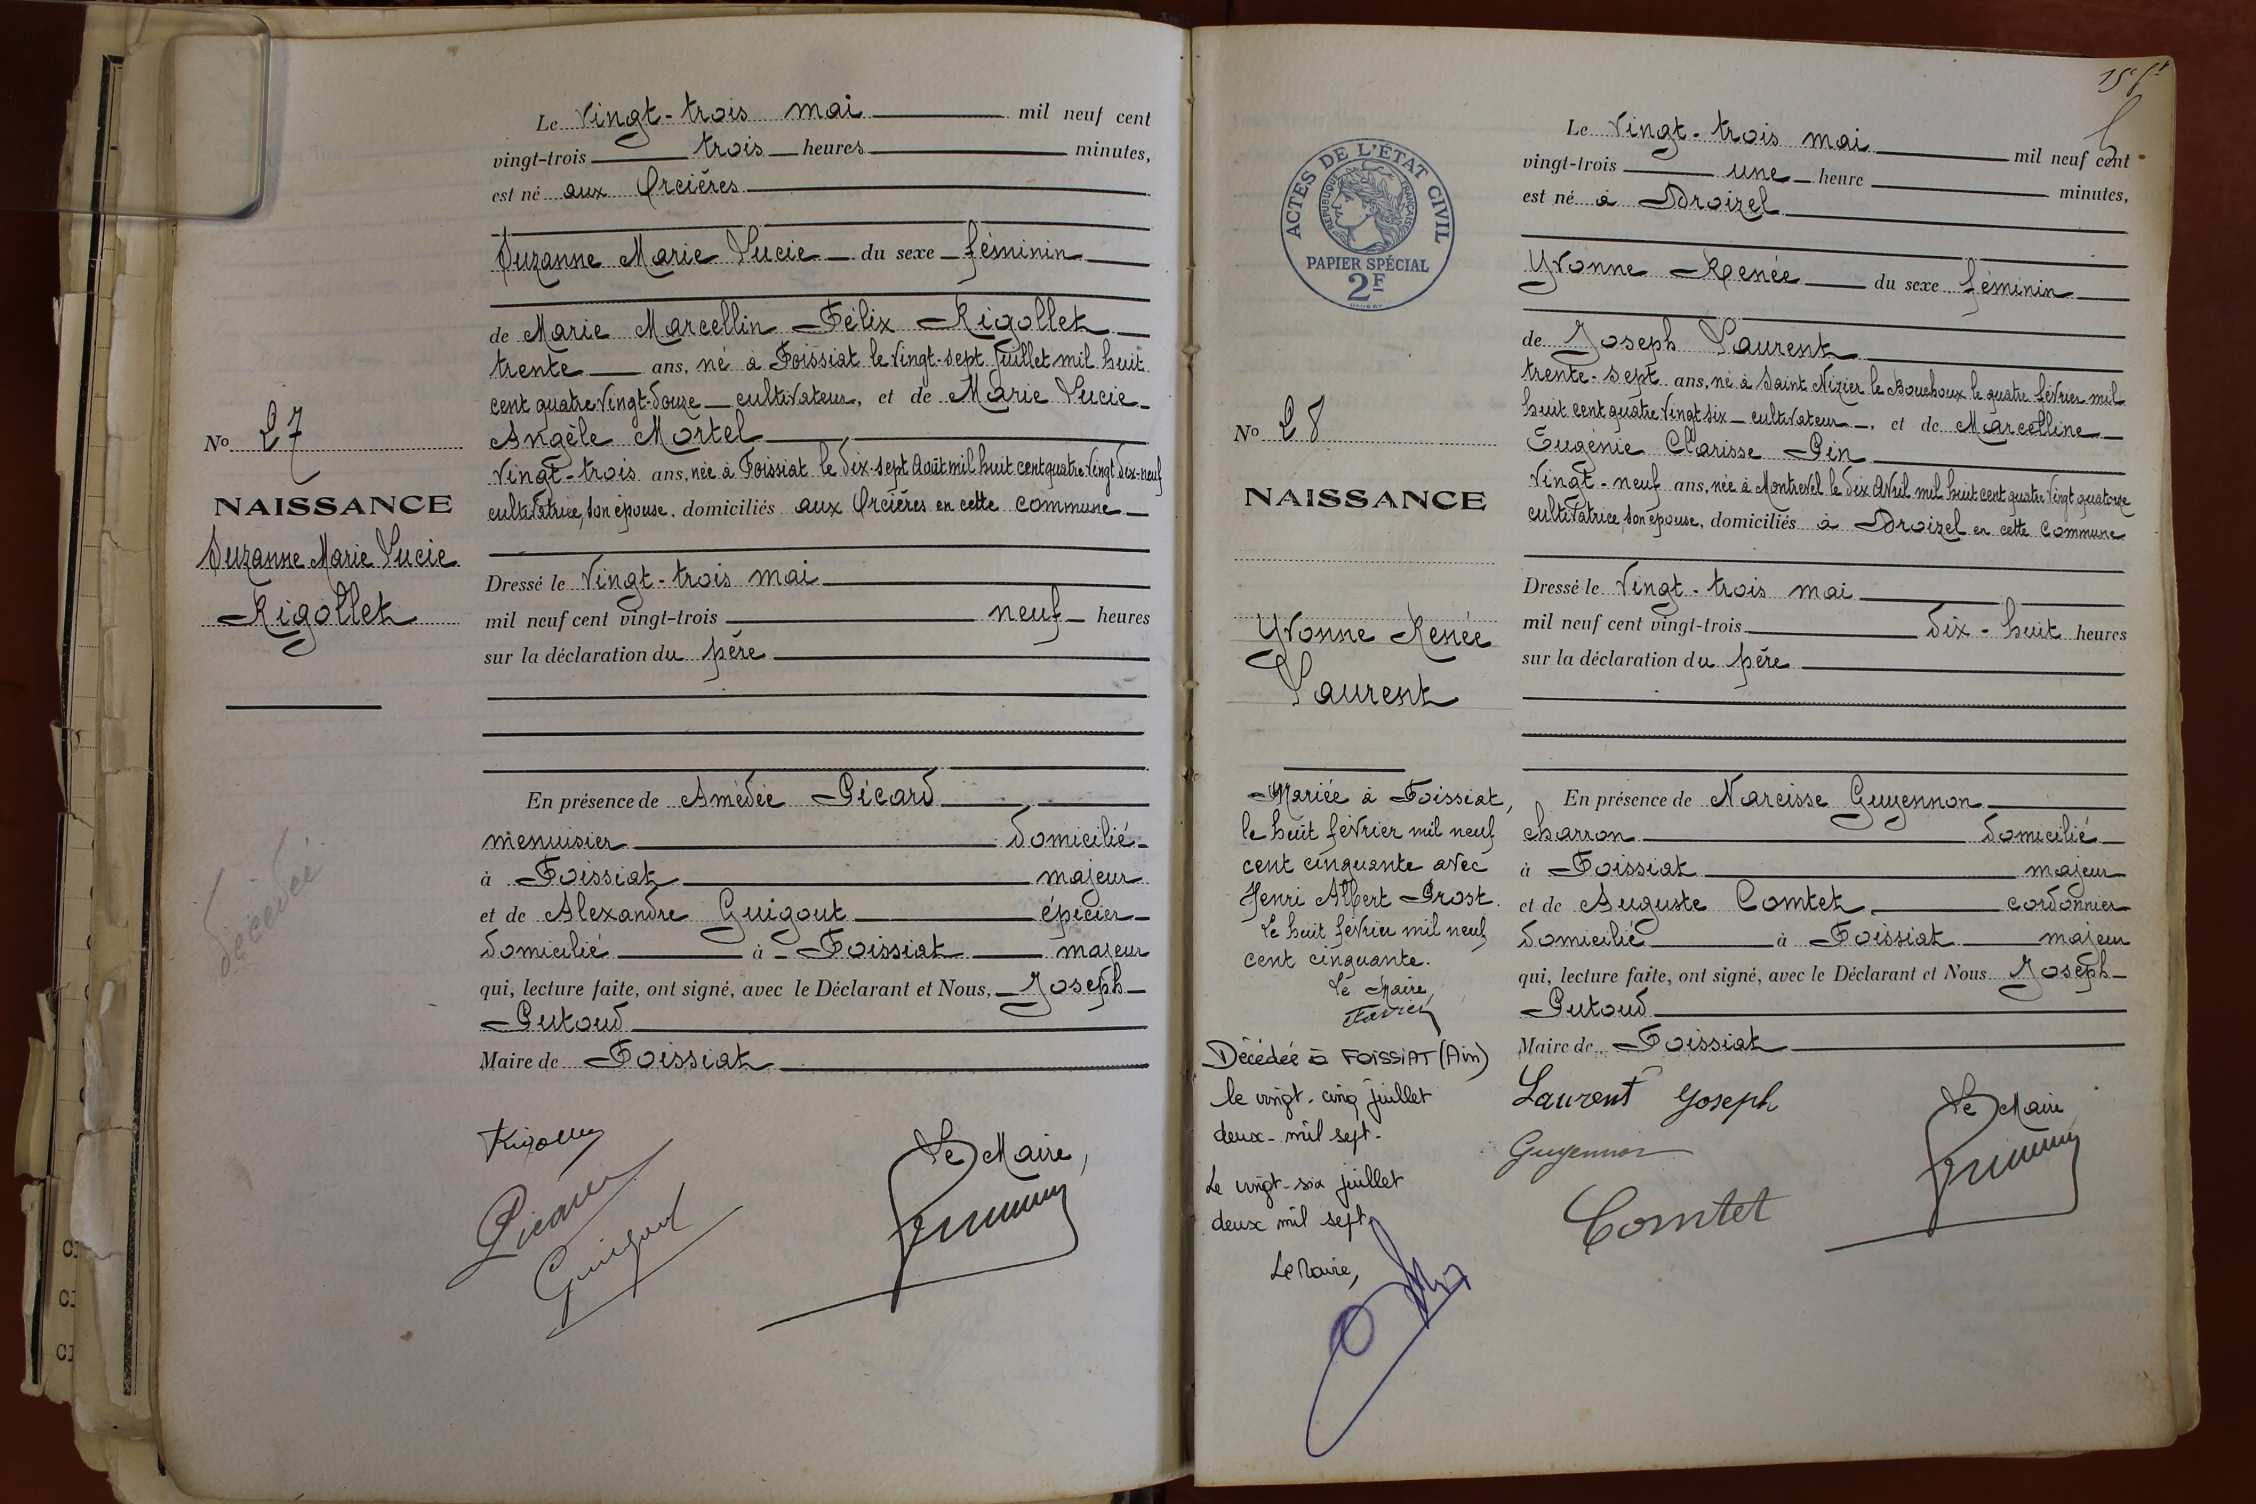 Le vingt-trois mai mil neuf cent
vingt-trois trois heures minutes,
est né aux Orcières
Suzanne Marie Lucie du sexe féminin
de Marie Marcellin Félix Rigollet
trente ans, né à Foissiat le vingt-sept Juillet mil huit
cent quatre vingt-douze cultivateur, et de Marie Lucie
Angèle Mortel
vingt-trois ans, née à Foissiat le dix-sept Août mil huit cent quatre vingt dix-neuf
cultivatrice, son épouse, domiciliés aux Orcières en cette commune
Dressé le vingt-trois mai
mil neuf cent vingt-trois neuf heures
sur la déclaration du père
En présence de Amédée Picard
menuisier domicilié
à Foissiat majeur
et de Alexandre Guigout épicier
domicilié à Foissiat majeur
qui, lecture faite, ont signé, avec le Déclarant et Nous, Joseph
Putoud
Maire de Foissiat
Le Maire,
Guigout
No 27
NAISSANCE
Suzanne Marie Lucie
Rigollet
décédé
Le vingt-trois mai mil neuf cent
vingt-trois une heure minutes,
est né à Droizel
Yvonne Renée du sexe féminin
de Joseph Laurent
trente-sept ans, né à Saint Nizier le Bouchoux le quatre février mil
huit cent quatre vingt six cultivateur, et de Marcelline
Eugénie Clarisse Pin
vingt-neuf ans, née à Montrevel le dix Avril mil huit cent quatre vingt quatorze
cultivatrice, son épouse, domiciliés à Droizel en cette commune
Dressé le vingt-trois mai
mil neuf cent vingt-trois dix-huit heures
sur la déclaration du père
En présence de Narcisse Guyennon
charron domicilié
à Foissiat majeur
et de Auguste Comtet cordonnier
domicilié à Foissiat majeur
qui, lecture faite, ont signé, avec le Déclarant et Nous Joseph
Putoud
Maire de Foissiat
Laurent Joseph
Le Maire
Guyennon
Comtet
ACTES DE L'ÉTAT CIVIL
RÉPUBLIQUE FRANÇAISE
PAPIER SPÉCIAL
2F
No 28
NAISSANCE
Yvonne Renée
Laurent
Mariée à Foissiat,
le huit février mil neuf
cent cinquante avec
Henri Albert Prost.
Le huit février mil neuf
cent cinquante.
Le Maire,
Décédée à FOISSIAT (Ain)
le vingt-cinq juillet
deux-mil sept.
Le vingt-six juillet
deux mil sept
Le Maire,